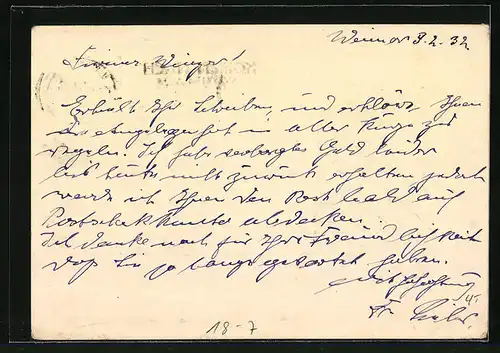 Weimar 9.2.32
Firma Winger!
Erhielt Ihr Schreiben, und erkläre Ihnen
die Angelegenheit in aller Kürze zu
regeln. Ich habe verborgtes Geld leider
bis heute nicht zurück erhalten jedoch
werde ich Ihnen den Rest bald auf
Postscheckkonto abdecken.
Ich danke noch für Ihre Freundlichkeit
daß Sie so lange gewartet haben.
Fr.
18-7